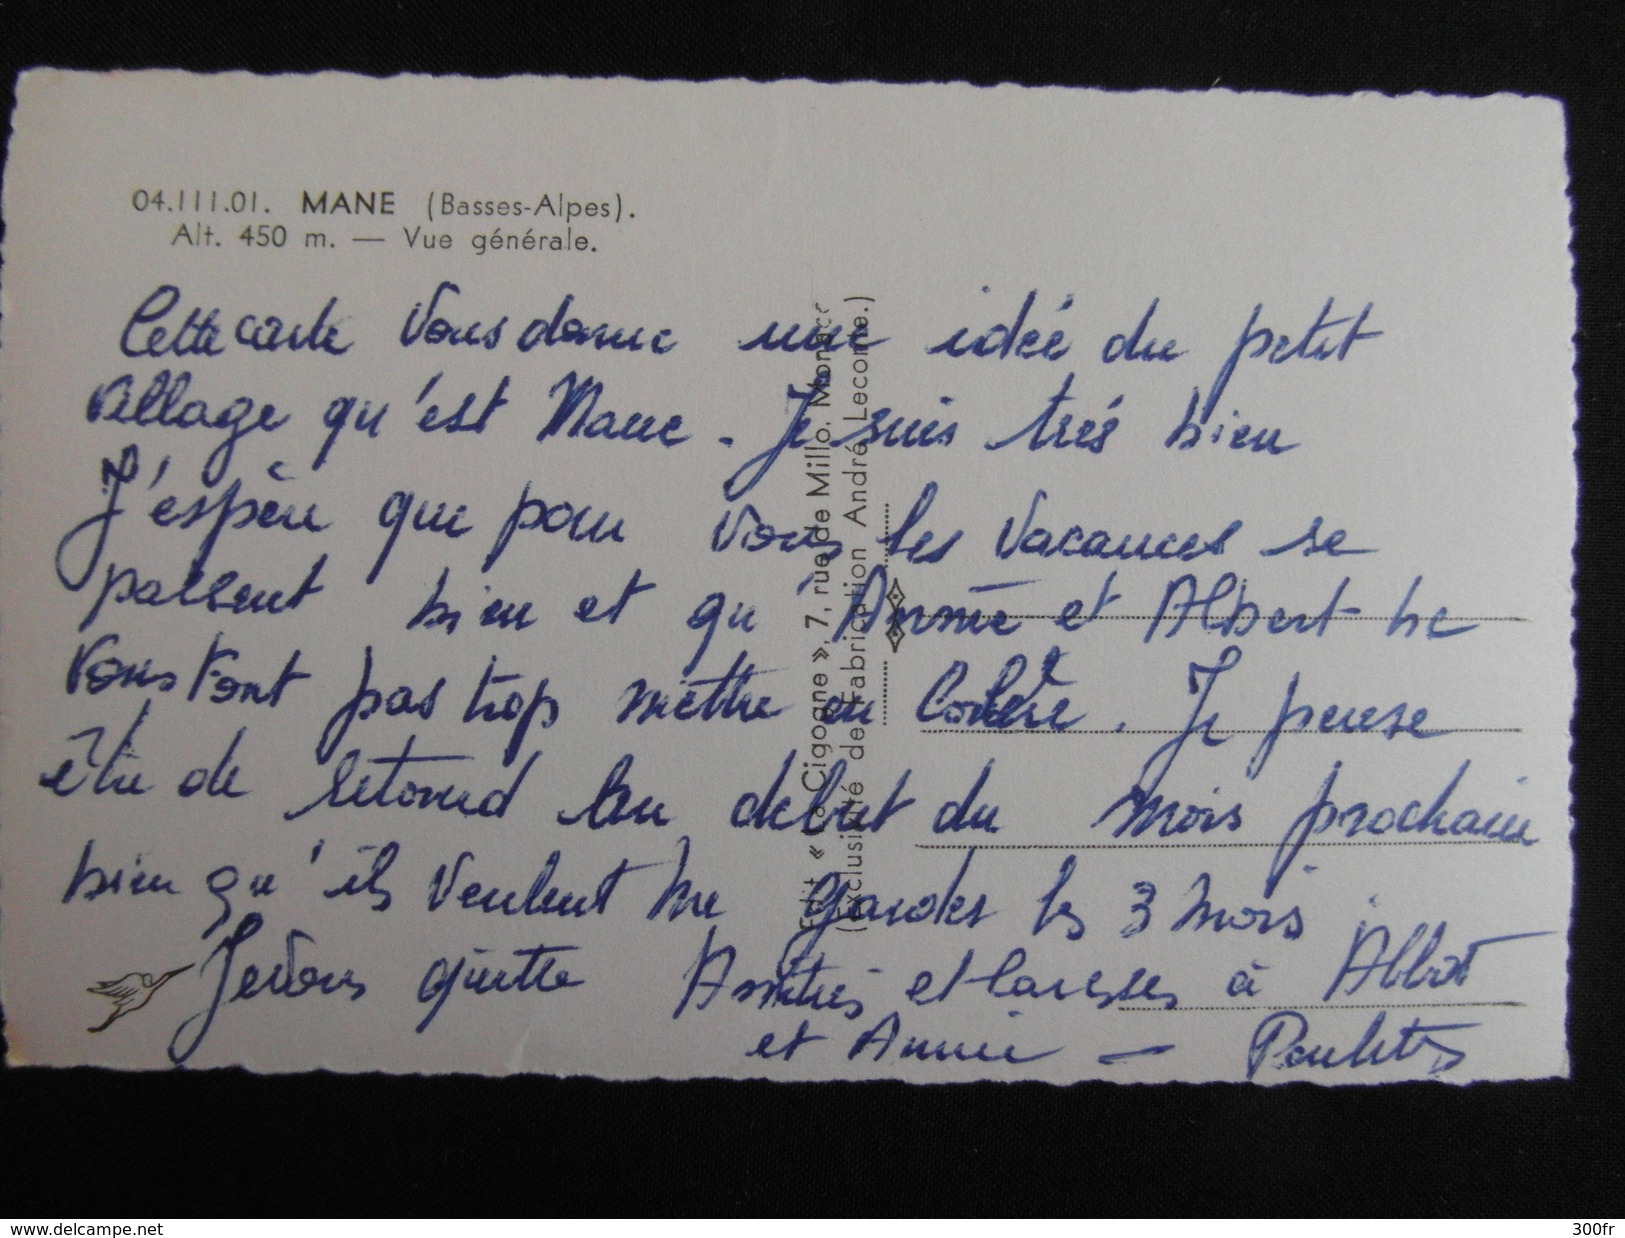 04.III.01. MANE (Basses-Alpes).
Alt. 450 m. — Vue générale.
Cette carte vous donne une idée du petit
village qu'est Mane. Je suis très bien
J'espère que pour vous les vacances se
passent bien et qu'Annie et Albert ne
vous font pas trop mettre en Colère. Je pense
être de retour au début du mois prochain
bien qu'ils veulent me garder les 3 mois.
Je vous quitte Amitiés et caresses à Albert
et Annie — Paulette
Edit « La Cigogne », 7, rue de Millo, Monaco
(Exclusivité de Fabrication André Leconte.)
www.delcampe.net
300fr